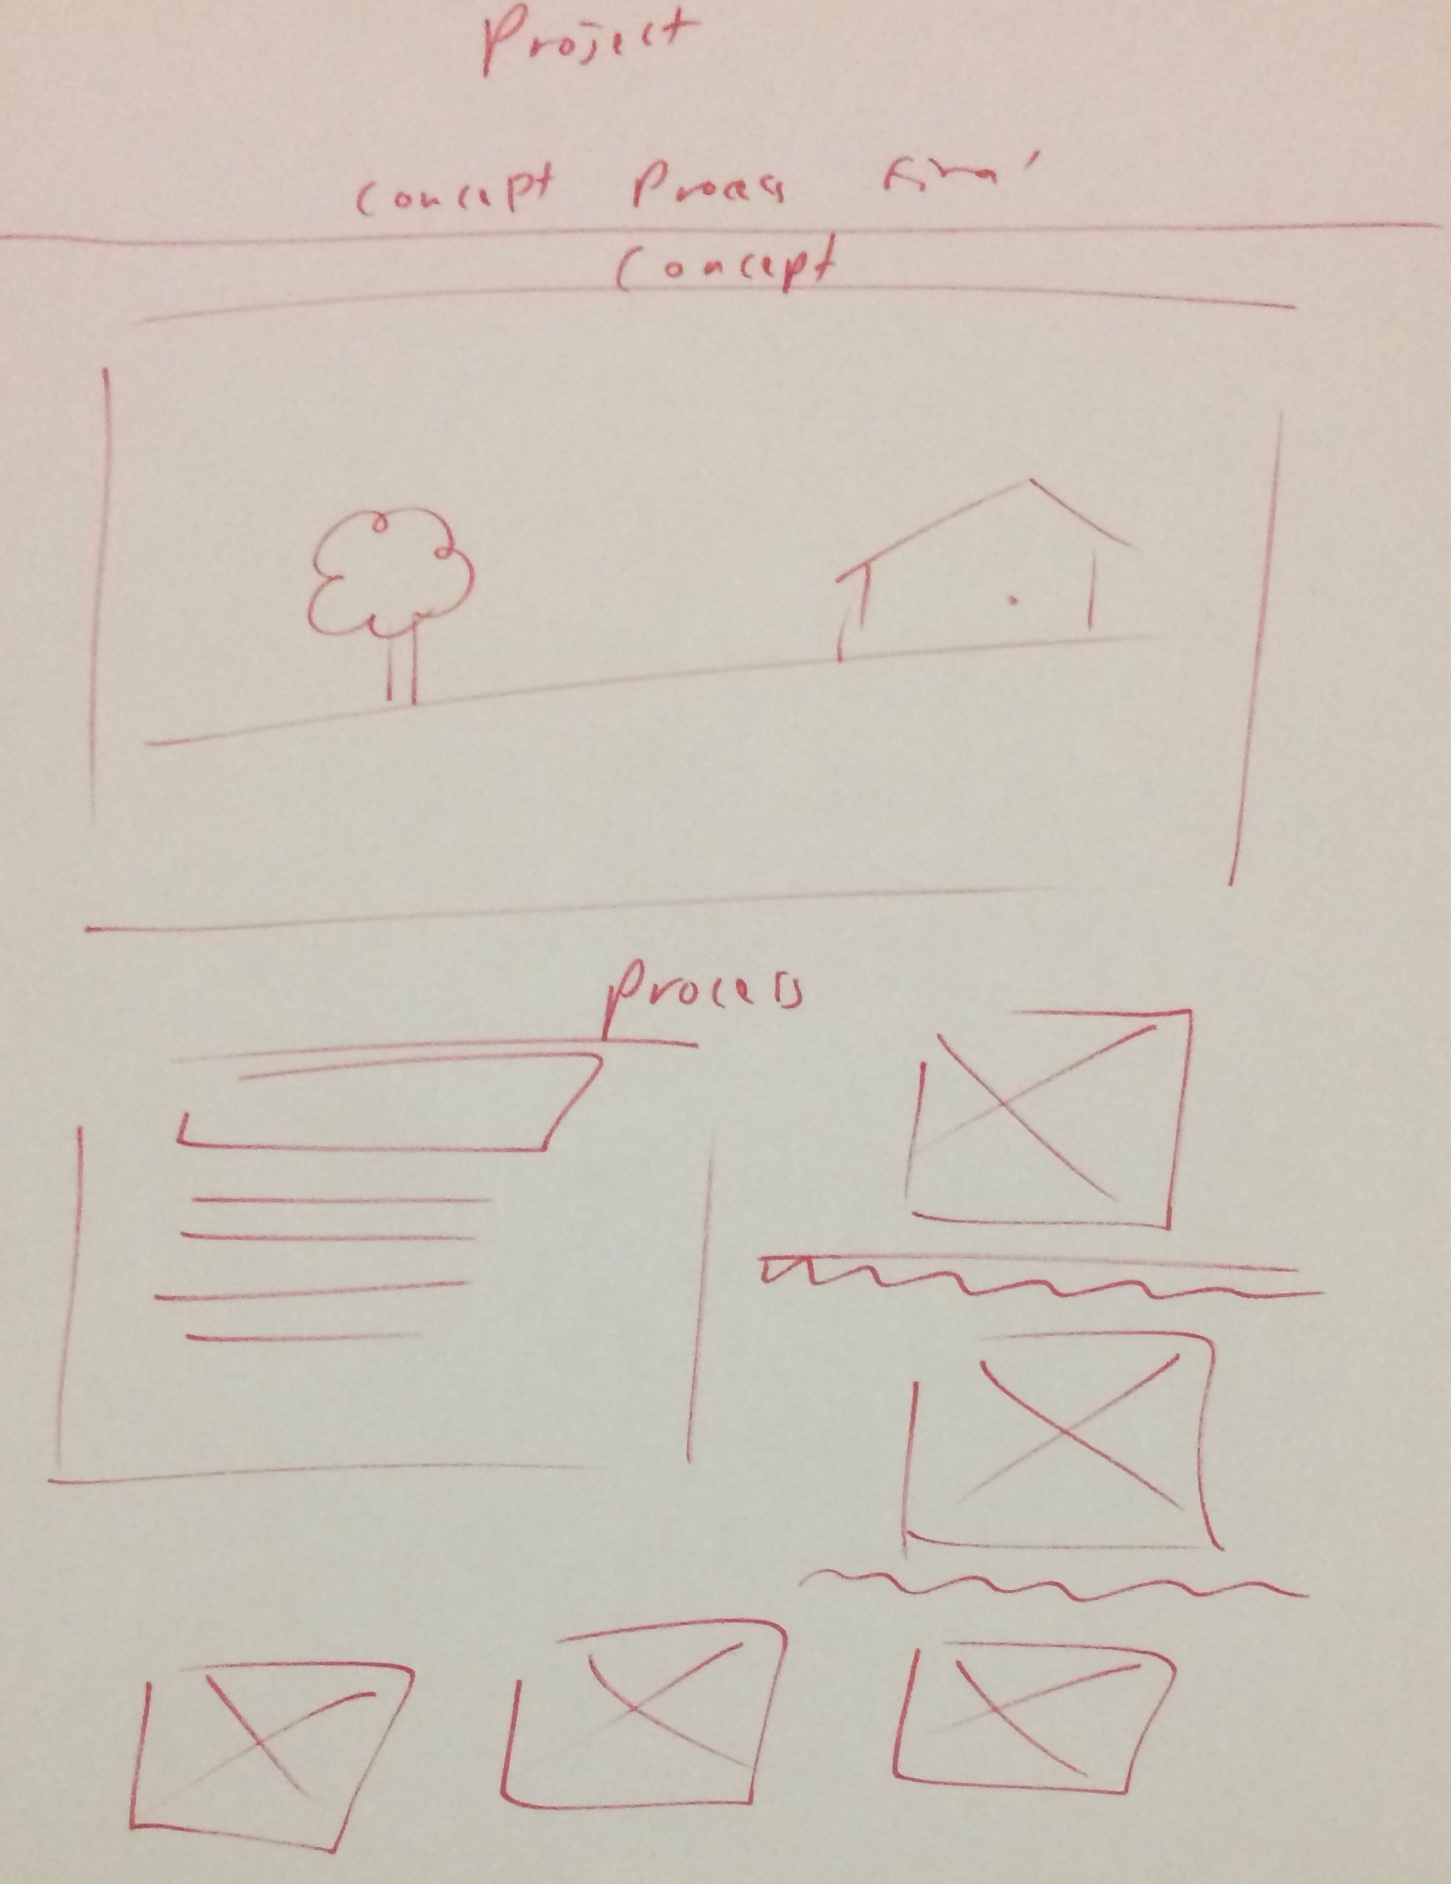 Project
Concept Process Final
Concept
Process